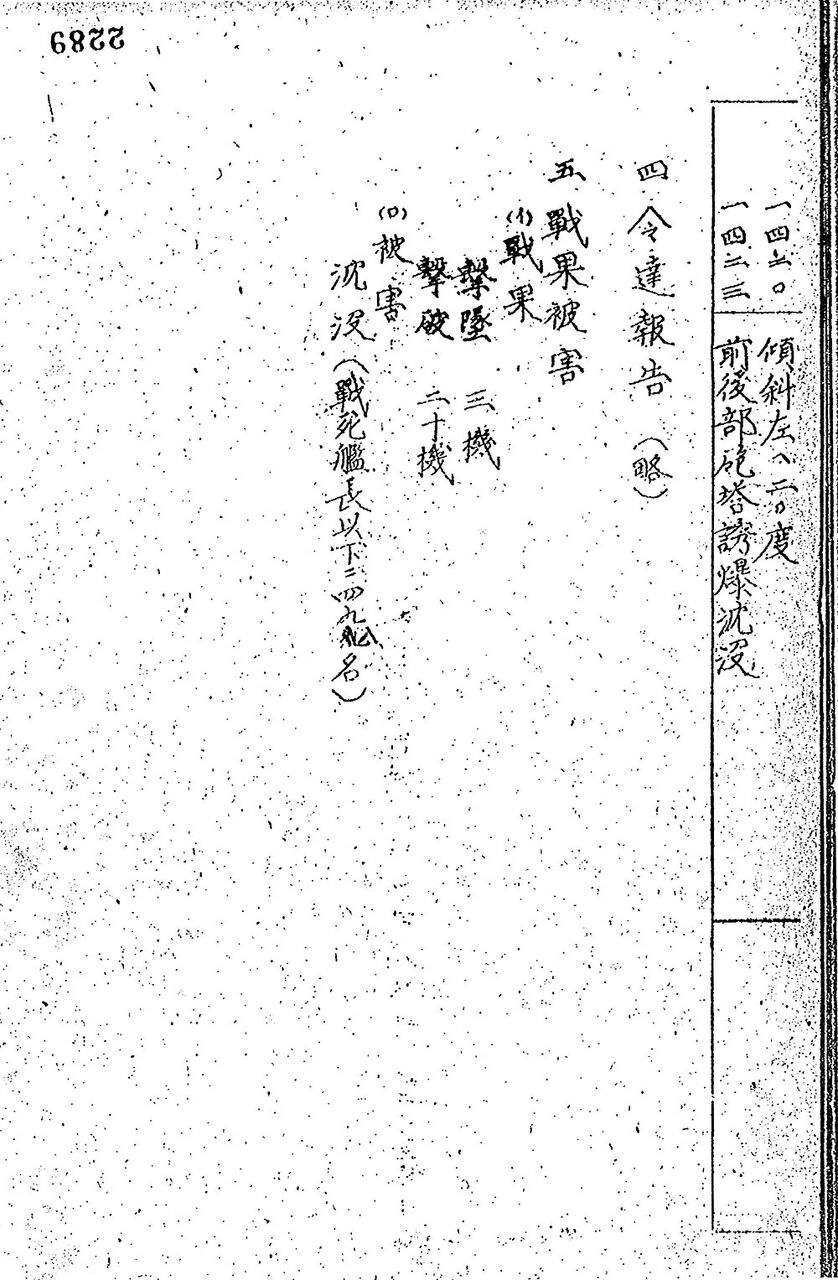 一四二〇 傾斜左へ二〇度
一四二三 前後部砲塔誘爆沈没
四、令達報告（略）
五、戰果被害
(イ)戰果
撃墜 三機
撃破 二十機
(ロ)被害
沈没（戰死艦長以下二四九八名）
2289